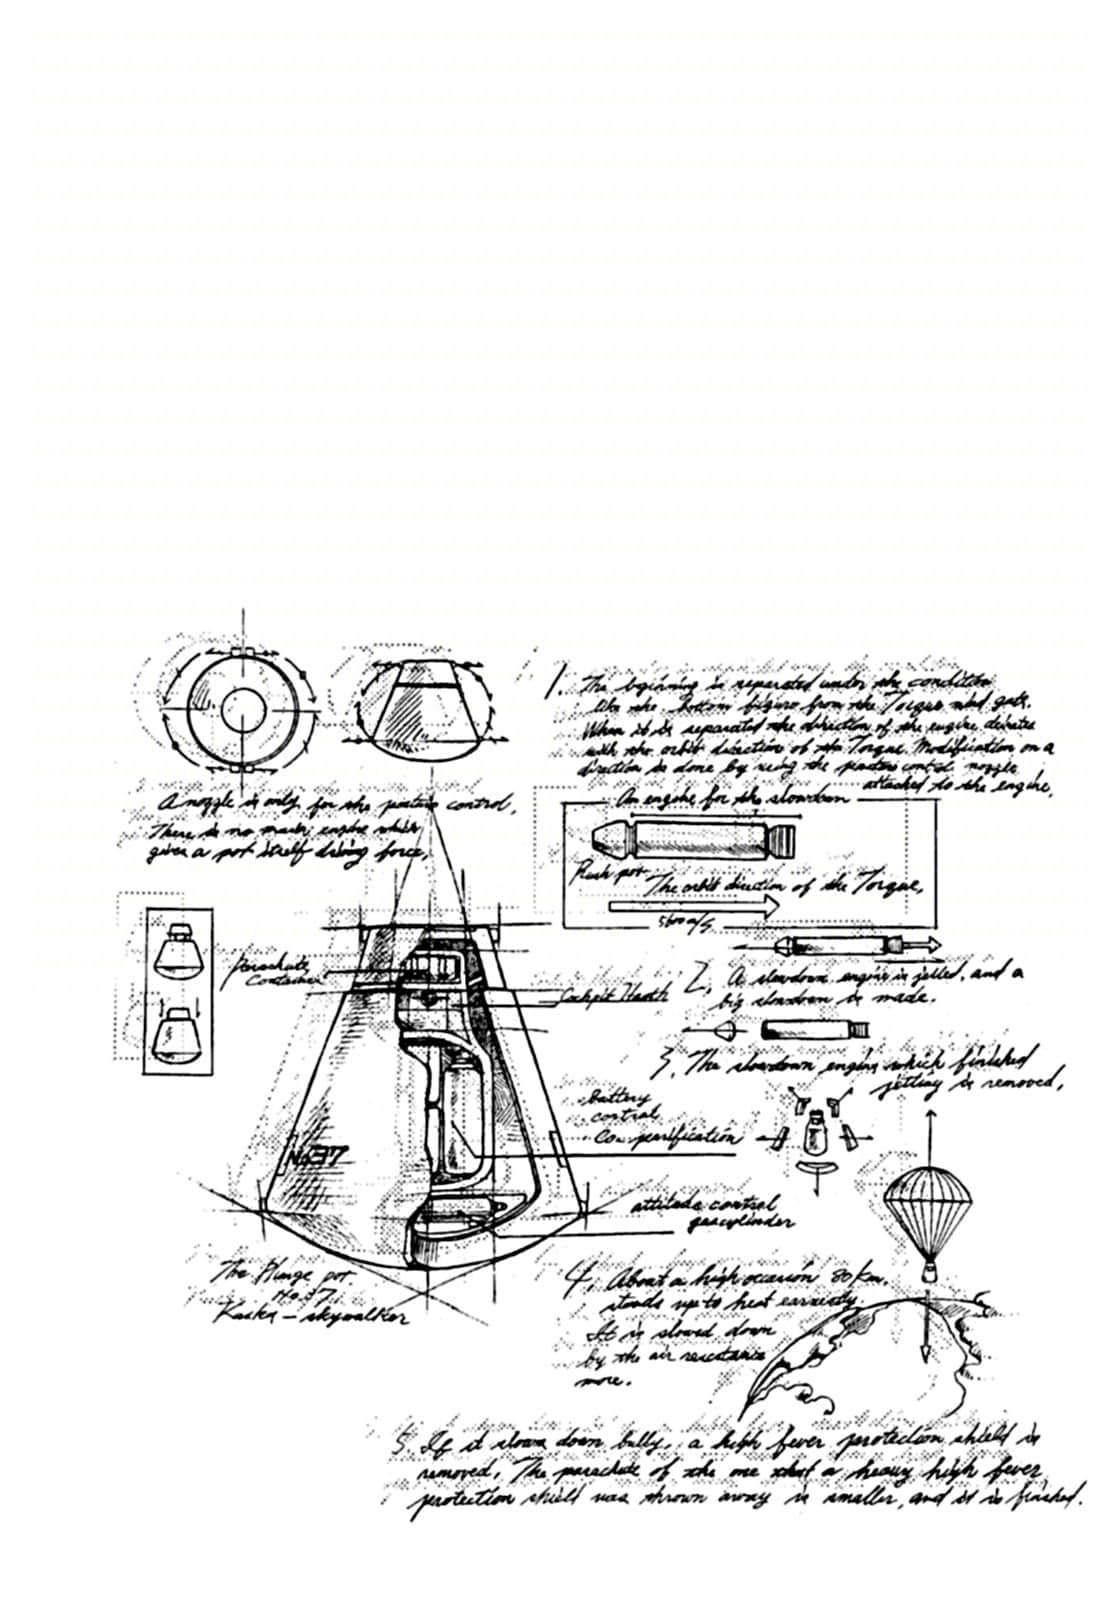 1. The bginning is separated under the condition
like the bottom figure from the Torque and gets.
When it is separated the direction of the engine
with the orbit direction of the Torque. Modification on a
direction is done by using the control nozzle
attached to the engine.
A nozzle is only for the control.
There is no main engine which
gives a pot itself driving force.
An engine for the slowdown
The orbit direction of the Torque.
Parachute
Container
Cockpit
2. A slowdown engine is jetted, and a
big slowdown is made.
3. The slowdown engine which finished
jetting is removed,
battery
control
No37
attitude control
gascylinder
The Plunge pot.
No.37.
Kaska - skywalker
4. About a high occasion 80 Km.
stands up to heat
It is slowed down
by the air resistance
more.
5. If it slows down fully, a high fever protection shield is
removed. The parachute of the one that a heavy high fever
protection shield was thrown away is smaller, and it is finished.